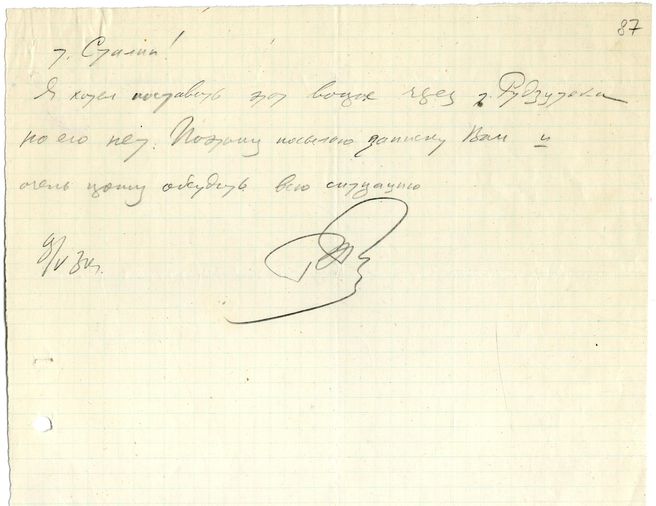 87
т. Сталин!
Я хотел поставить этот вопрос через т. Рудзутака
но его нет. Поэтому посылаю записку Вам и
очень прошу обсудить всю ситуацию
9/V